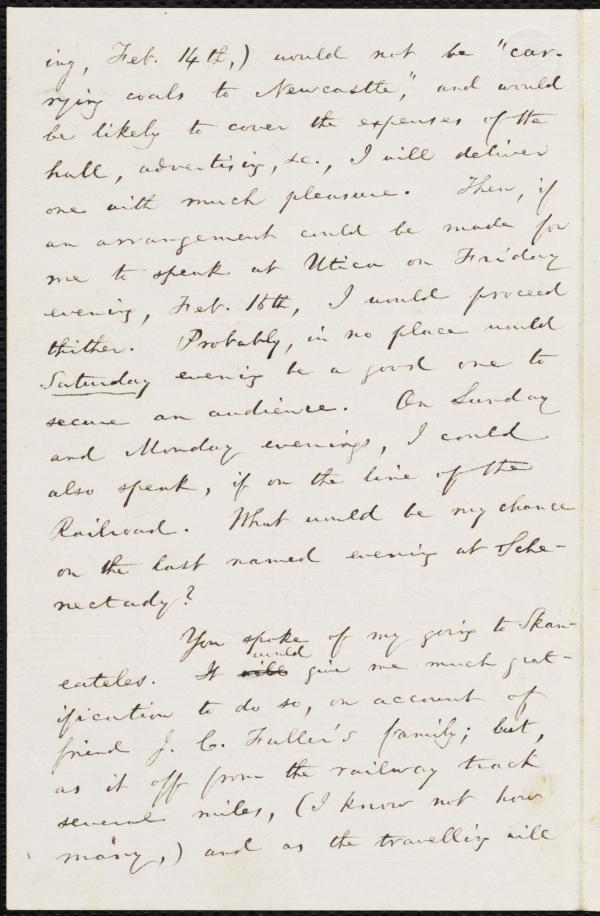 ing, Feb. 14th,) would not be "car-
rying coals to Newcastle," and would
be likely to cover the expenses of the
hall, advertising, &c., I will deliver
one with much pleasure. Then, if
an arrangement could be made for
me to speak at Utica on Friday
evening, Feb. 15th, I would proceed
thither. Probably, in no place would
Saturday evening be a good one to
secure an audience. On Sunday
and Monday evenings, I could
also speak, if on the line of the
Railroad. What would be my chance
on the last named evening at Sche-
nectady?
You spoke of my going to Skan-
would
eateles. It will give me much grat-
ification to do so, on account of
friend J. C. Fuller's family; but,
as it off from the railway track
several miles, (I know not how
many,) and as the travelling will